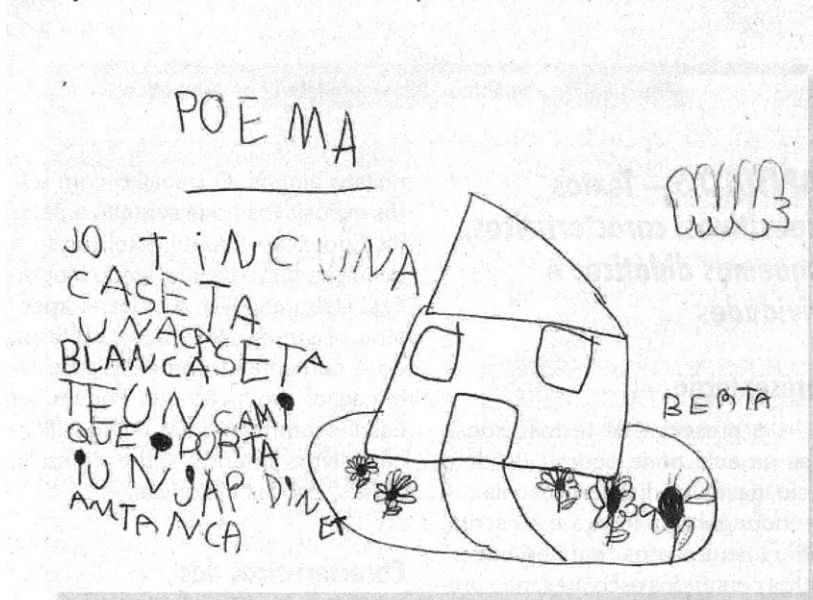 POEMA
JO TINC UNA
CASETA
UNA CASETA
BLANCA
TE UN CAMI
QUE PORTA
I UN JARDINET
AMTANCA
BERTA